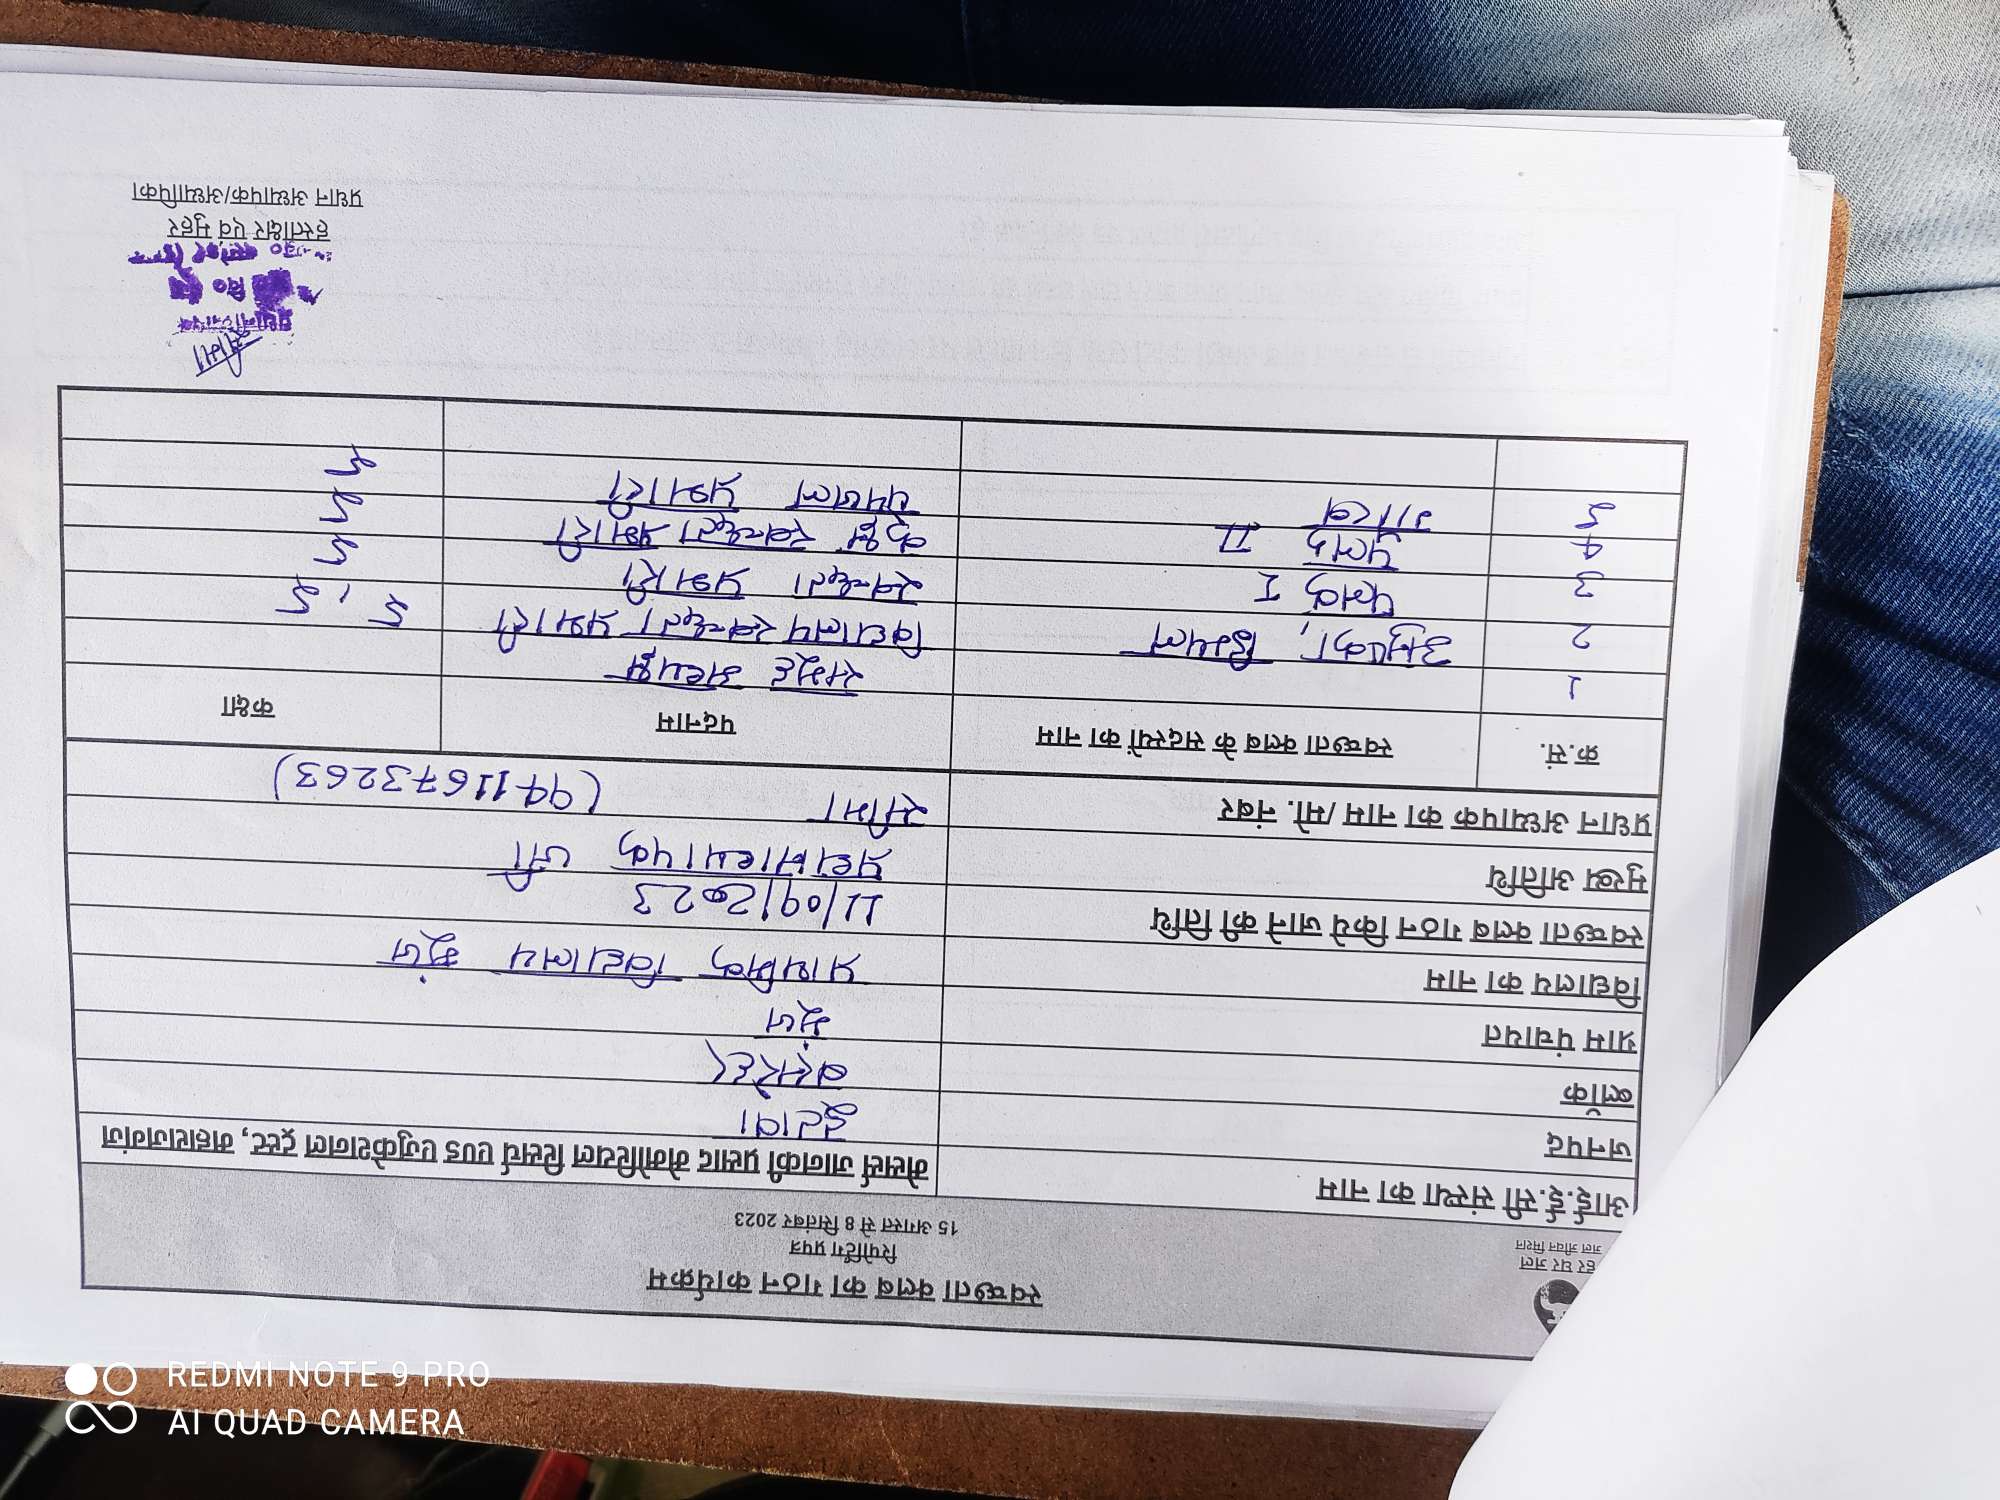 हर घर जल
जल जीवन मिशन
स्वच्छता क्लब का गठन कार्यक्रम
रिपोर्टिंग प्रपत्र
15 अगस्त से 8 सितंबर 2023
आई.ई.सी संस्था का नाम मेसर्स जानकी प्रसाद मेमोरियल रिसर्च एण्ड एजुकेशनल ट्रस्ट, महाराजगंज
जनपद इटावा
ब्लॉक बसरेहर
ग्राम पंचायत मूंज
विद्यालय का नाम प्राथमिक विद्यालय मूंज
स्वच्छता क्लब गठन किये जाने की तिथि 11/09/2023
मुख्य अतिथि प्रधानाध्यापक जी
प्रधान अध्यापक का नाम /मो. नंबर सीमा (9411673263)
क्र.सं. स्वच्छता क्लब के सदस्यों का नाम पदनाम कक्षा
1 समूह अध्यक्ष
2 विद्यालय स्वच्छता प्रभारी 5, 5
3 पलक I स्वच्छता प्रभारी 5
4 पलक II कक्षा स्वच्छता प्रभारी 5
5 पेयजल प्रभारी 5
सीमा
हस्ताक्षर एवं मुहर
प्रधान अध्यापक/अध्यापिका
REDMI NOTE 9 PRO
AI QUAD CAMERA